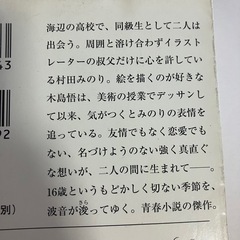 海辺の高校で、同級生として二人は
出会う。周囲と溶け合わずイラスト
レーターの叔父だけに心を許している
村田みのり。絵を描くのが好きな
木島悟は、美術の授業でデッサンし
て以来、気がつくとみのりの表情を
追っている。友情でもなく恋愛でも
ない、名づけようのない強く真直ぐ
な想いが、二人の間に生まれて──。
16歳というもどかしく切ない季節を、
波音が浚ってゆく。青春小説の傑作。
さら
43
92
別）